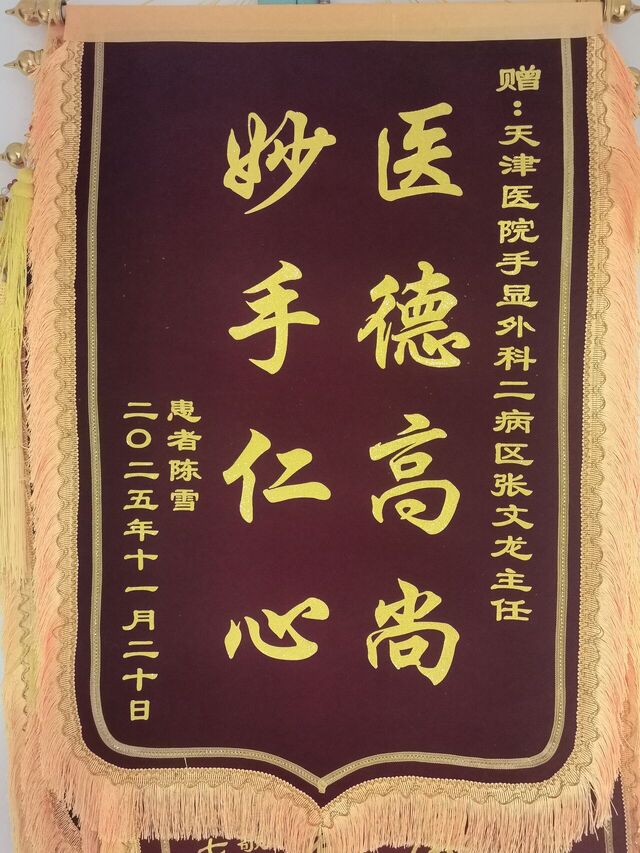 赠：天津医院手显外科二病区张文龙主任
医德高尚
妙手仁心
患者陈雪
二〇二五年十一月二十日